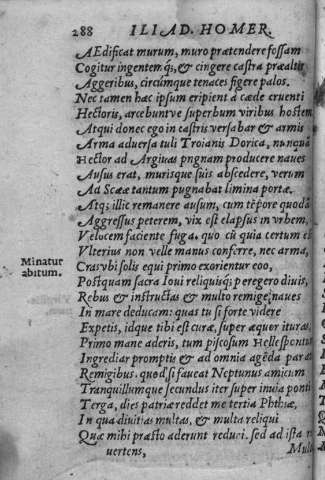 288 ILIAD. HOMER.
AEdificat murum, muro prætendere fossam
Cogitur ingentemq;, & cingere castra præaltis
Aggeribus, circúmque tenaces figere palos.
Nec tamen hac ipsum eripient à cæde cruenti
Hectoris, arcebuntve superbum viribus hostem
Atqui donec ego in castris versabar & armis
Arma adversa tuli Troianis Dorica, nunquā
Hector ad Argiuas pngnam producere naues
Ausus erat, murisque suis abscedere, verum
Ad Scææ tantum pugnabat limina portæ.
Atq; illic remanere ausum, cum tēpore quodā
Aggressus peterem, vix est elapsus in vrbem,
Velocem faciente fuga. quo cū quia certum est
Vlterius non velle manus conferre, nec arma,
Cras vbi solis equi primo exorientur eoo,
Minatur
abitum.
Postquam sacra Ioui reliquisq; peregero diuis,
Rebus & instructas & multo remige naues
In mare deducam: quas tu si forte videre
Expetis, idque tibi est curæ, super æquor ituras,
Primo mane aderis, tum piscosum Hellespontum
Ingrediar promptis & ad omnia agēda paratis
Remigibus. quod si faueat Neptunus amicum
Tranquillumque secundus iter super inuia ponti
Terga, dies patriæ reddet me tertia Phthiæ,
In qua diuitias multas, & multa reliqui
Quæ mihi præsto aderunt reduci. sed ad ista
uertens,